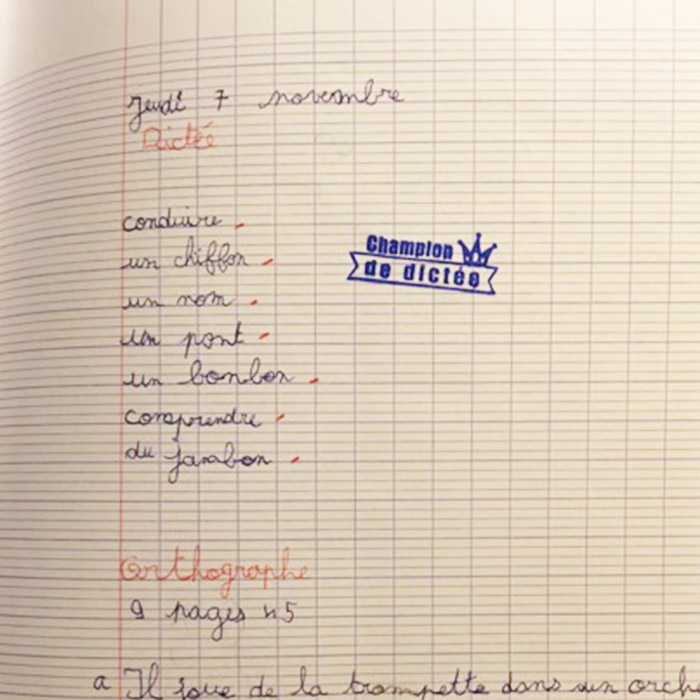 Jeudi 7 novembre
Dictée
conduire
un chiffon
Champion
de dictée
un nom
un pont
un bonbon
comprendre
du jambon
Orthographe
9 pages 45
a Il joue de la trompette dans un orch